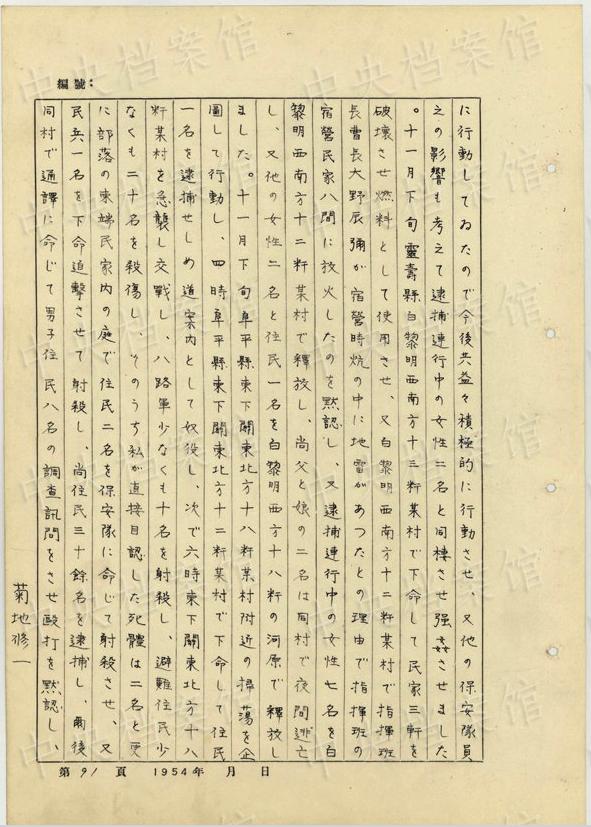 編號:
に行動してゐたので今後共益々積極的に行動させ、又他の保安隊員
之の影響も考えて逮捕連行中の女性二名と同棲させ强姦させました
。十一月下旬靈壽縣白黎明西南方十三粁某村で下命して民家三軒を
破壞させ燃料として使用させ、又白黎明西南方十二粁某村で指揮班
長曹長大野辰彌が宿營時炕の中に地雷があつたとの理由で指揮班の
宿營民家八間に放火したのを默認し、又逮捕連行中の女性七名を白
黎明西南方十二粁某村で釋放し、尚父と娘の二名は同村で夜間逃亡
し、又他の女性二名と住民一名を白黎明西方十八粁の河原で釋放し
ました。十一月下旬阜平縣東下關東北方十八粁某村附近の掃蕩を企
圖して行動し、四時阜平縣東下關東北方十二粁某村で下命して住民
一名を逮捕せしめ道案內として奴役し、次で六時東下關東北方十八
粁某村を急襲し交戰し、八路軍少なくも十名を射殺し、避難住民少
なくも二十名を殺傷し、そのうち私が直接目認した死體は二名と更
に部落の東端民家內の庭で住民二名を保安隊に命じて射殺させ、又
民兵一名を下命追擊させて射殺し、尚住民三十餘名を逮捕し、爾後
同村で通譯に命じて男子住民八名の調查訊問をさせ毆打を默認し、
菊地修一
第91頁 1954年 月 日
中央档案馆